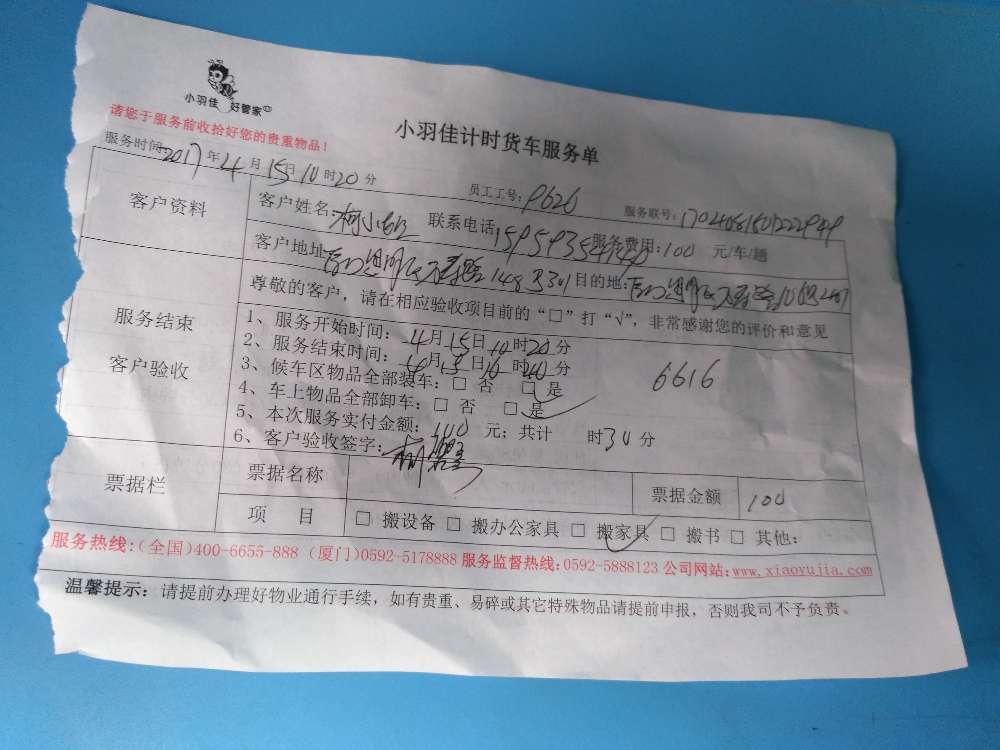 小羽佳 好管家
小羽佳计时货车服务单
请您于服务前收拾好您的贵重物品！
服务时间：2017年4月15日10时20分 员工工号：P626 服务联号：
客户资料 客户姓名： 联系电话： 服务费用：100 元/车/趟
客户地址： 目的地：
服务结束
客户验收
尊敬的客户，请在相应验收项目前的“□”打“√”，非常感谢您的评价和意见
1、服务开始时间：4月15日10时20分
2、服务结束时间：4月15日10时 分
3、候车区物品全部装车：□ 否 □ 是
4、车上物品全部卸车：□ 否 □ 是
6616
5、本次服务实付金额：100 元；共计 时30分
6、客户验收签字：
票据栏 票据名称 票据金额 100
项 目 □ 搬设备 □ 搬办公家具 □ 搬家具 □ 搬书 □ 其他：
服务热线：(全国)400-6655-888 (厦门)0592-5178888 服务监督热线：0592-5888123 公司网站：www.xiaoyujia.com
温馨提示：请提前办理好物业通行手续，如有贵重、易碎或其它特殊物品请提前申报，否则我司不予负责。